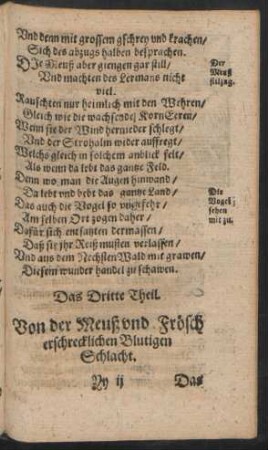 Vnd denn mit grossem gschrey vnd krachen/
Sich des abzugs halben besprachen.
DJe Meuß aber giengen gar still/
Vnd machten des Lermans nicht
viel.
Der
Meuß
stilzug.
Rauschten nur heimlich mit den Wehren/
Gleich wie die wachsende Korn Eeren/
Wenn sie der Wind hernieder schlegt/
Vnd der Strohalm wider auffregt/
Welchs gleich in solchem anblick felt/
Als wenn da lebt das gantze Feld.
Denn wo man die Augen hinwand/
Da lebt vnd bebt das gantz Land/
Das auch die Vogel so
Die
Vogel
sehen
mit zu.
Am selben Ort zogen daher/
Dafür sich entsatzten dermassen/
Daß sie jhr Reiß musten verlassen/
Vnd aus dem Nechsten Wald mit grawen/
Diesem wunder handel zu schawen.
Das Dritte Theil.
Von der Meuß vnd Frösch
erschrecklichen Blutigen
Schlacht.
Yy ij
Das